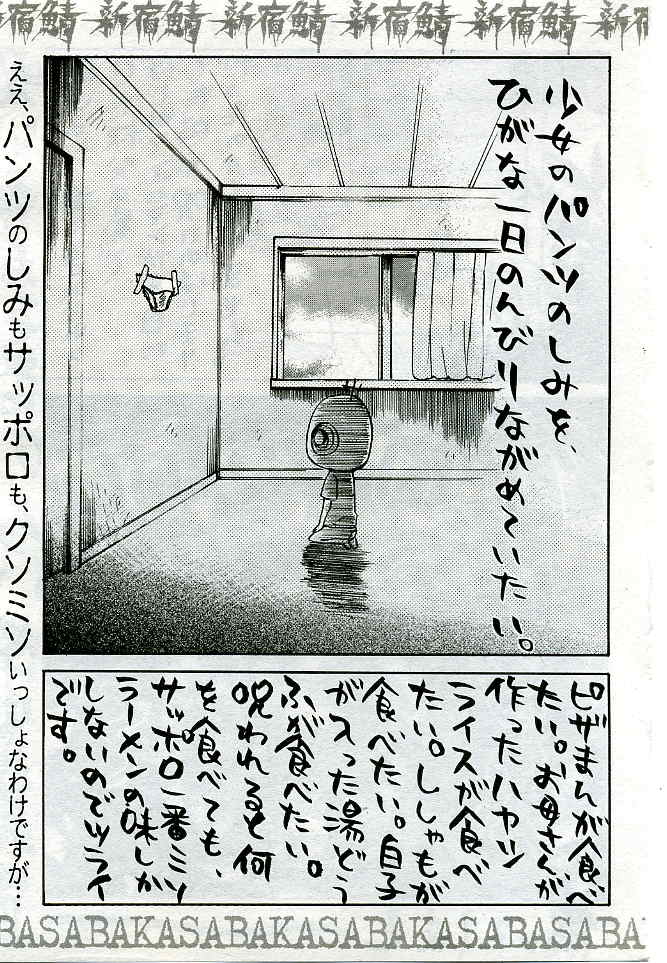 宿鯖 新宿鯖 新宿鯖 新宿鯖 新宿
少女のパンツのしみを、
ひがな一日のんびりながめていたい。
ピザまんが食べ
たい。お母さんが
作ったハヤシ
ライスが食べ
たい。ししゃもが
食べたい。白子
が入った湯どう
ふが食べたい。
呪われると何
を食べても、
サッポロ一番ミソ
ラーメンの味しか
しないのでツライ
です。
ええ、パンツのしみもサッポロも、クソミソいっしょなわけですが…
BASABAKASABAKASABAKASABAKASABASABA